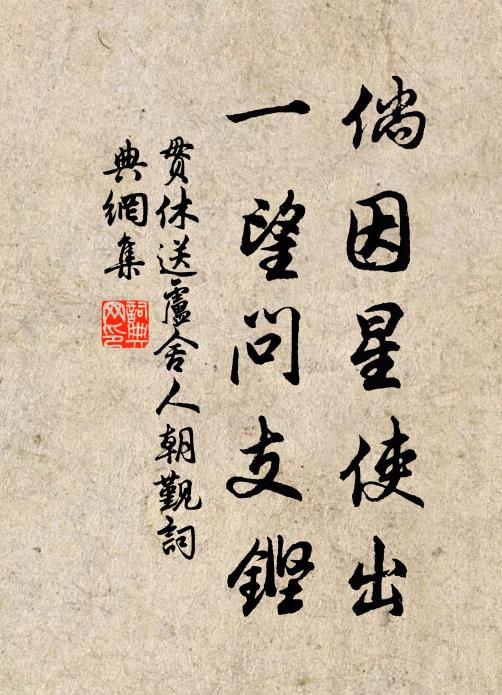 倘因星使出
一望問支鏗
貫休送盧舍人朝覲詞
典網集
詞典
网印